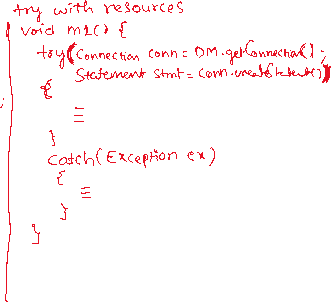 try with resources
void m1() {
try(Connection conn = DM.getConnection();
Statement stmt = conn.createStatement())
{
}
catch(Exception ex)
{
}
}